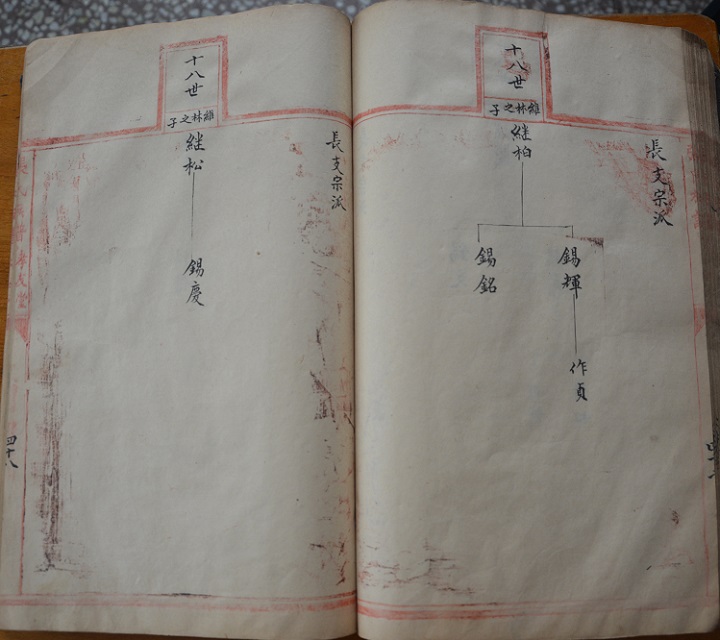 長支宗派
十八世
維林之子
継柏
錫輝
錫銘
作貞
長支宗派
十八世
維林之子
継松
錫慶
四十八